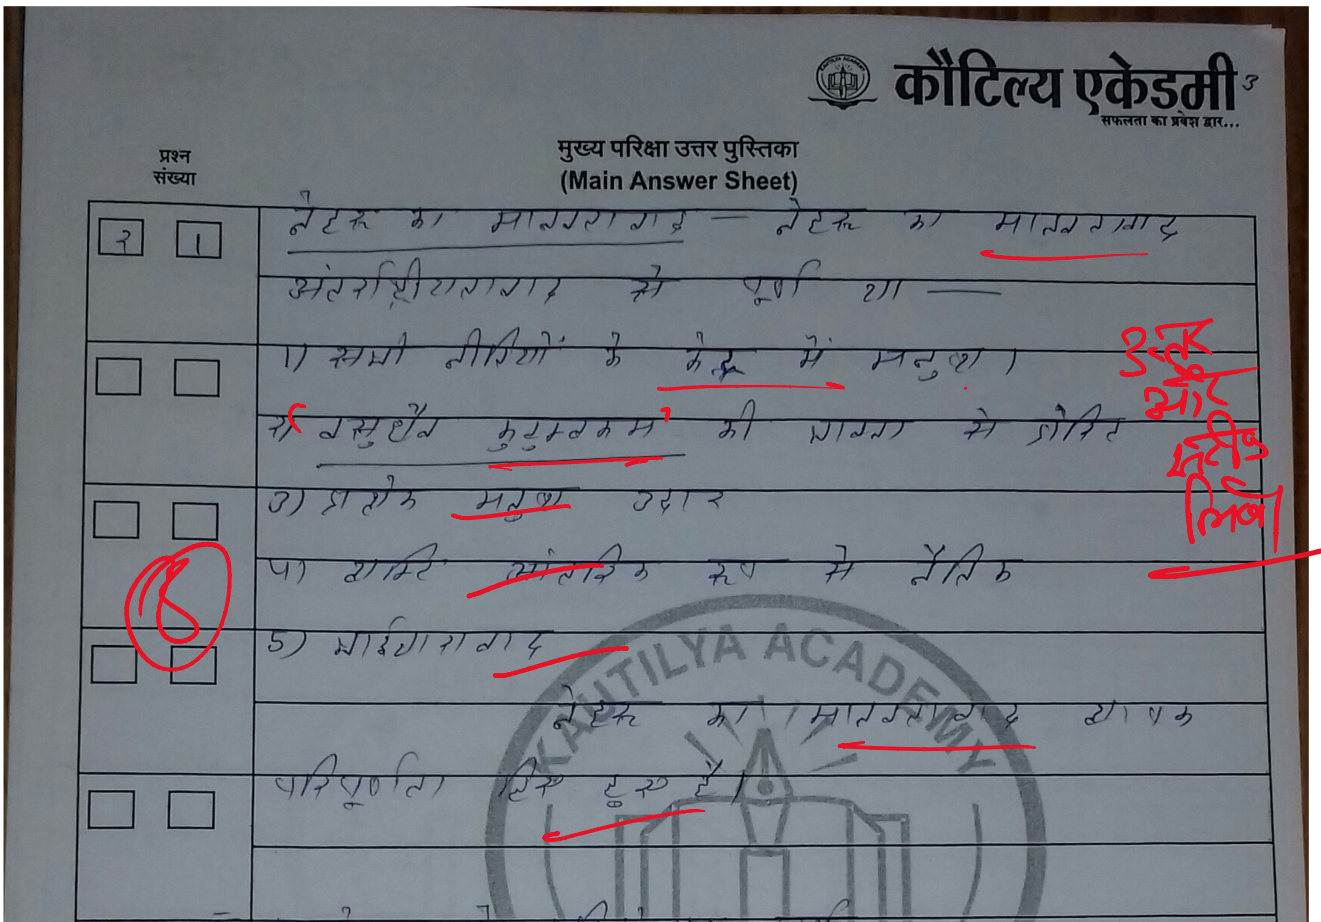 कौटिल्य एकेडमी 3
सफलता का प्रवेश द्वार...
मुख्य परिक्षा उत्तर पुस्तिका
(Main Answer Sheet)
प्रश्न
संख्या
२ 1
नेहरू का मानवतावाद — नेहरू का मानवतावाद
अंतर्राष्ट्रीयतावाद से पूर्ण था —
1) सभी नीतियों के केन्द्र में मनुष्य।
२) वसुधैव कुटुम्बकम की भावना से प्रेरित
3) प्रत्येक मनुष्य उदार
4) व्यक्ति आंतरिक रूप से नैतिक
5) भाईचारावाद
नेहरू का मानवतावाद व्यापक
परिपूर्णता लिए हुए है।
और
सटीक
लिखें
8
KAUTILYA ACADEMY